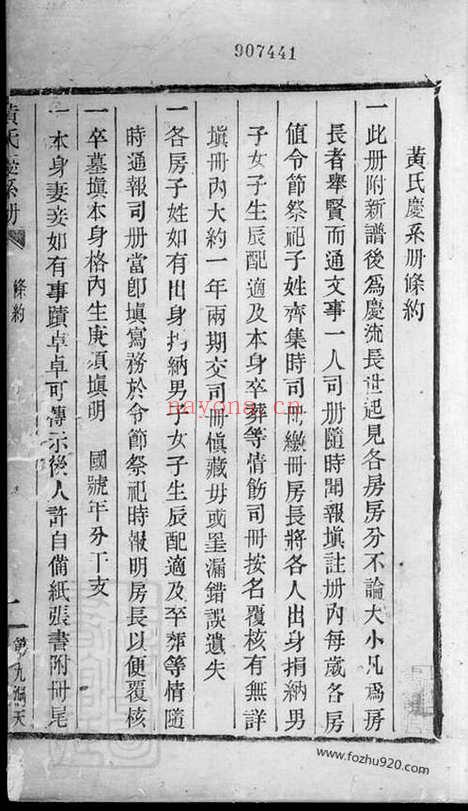 907441
黃氏慶系册條約
一此册附新譜後爲慶流長世起見各房房分不論大小凡爲房
長者舉賢而通文事一人司册隨時聞報塡註册內每歲各房
值令節祭祀子姓齊集時司册繳册房長將各人出身捐納男
子女子生辰配適及本身卒葬等情飭司册按名覆核有無詳
塡册內大約一年兩期交司册愼藏毋或罣漏錯誤遺失
一各房子姓如有出身捐納男子女子生辰配適及卒葬等情隨
時通報司册當卽塡寫務於令節祭祀時報明房長以便覆核
一卒墓塡本身格內生庚須塡明 國號年分干支
一本身妻妾如有事蹟卓卓可傳示後人許自備紙張書附册尾
黃氏慶系册
條約
nayona.cn
www.fozhu920.com